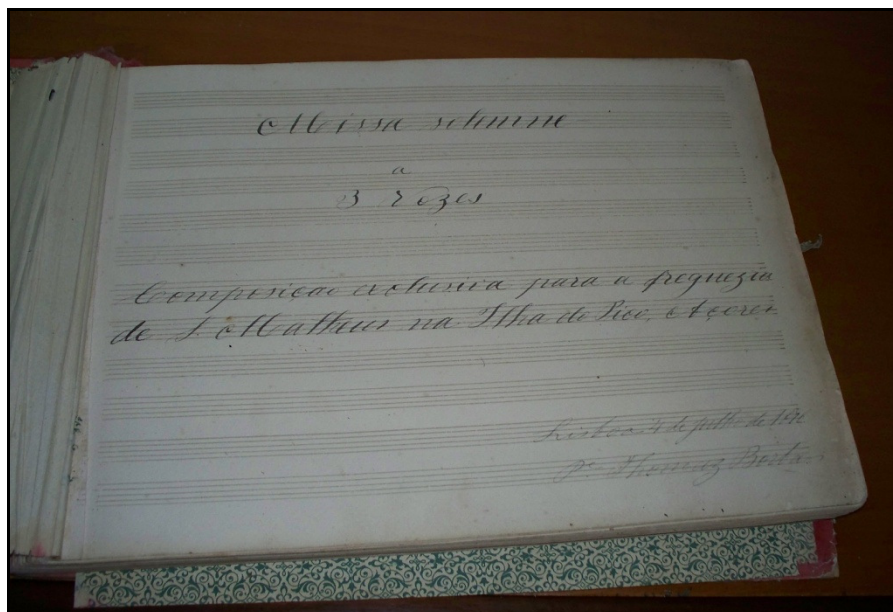 Missa solemne
a
3 Vozes
Composicao exclusiva para a freguezia
de S. Matheus na Ilha do Pico, Açores
Lisboa de julho de
Pe Thomaz Borba